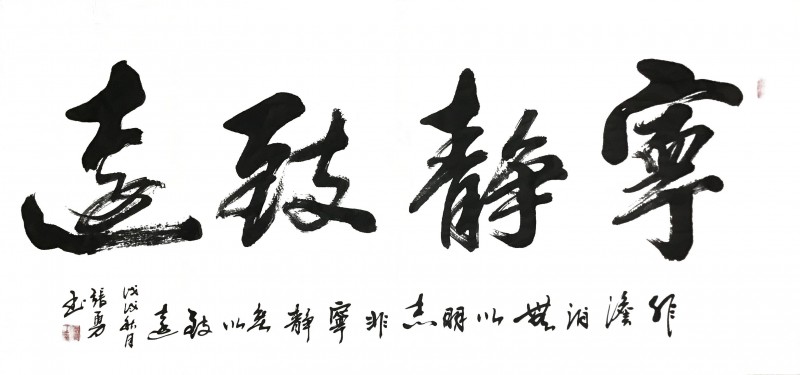 寧静致遠
非澹泊無以明志非寧静無以致遠
戊戌秋月
張勇
书